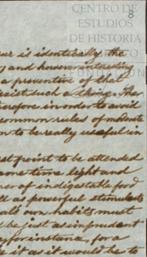 CENTRO DE
ESTUDIOS
DE HISTORIA
8
is identically the
and known
a preventive of that
such a thing. The
therefore in order to avoid
common rules of
to be really useful in
point to be attended
some time light and
of indigestible food
as powerful stimulants
own habits must
be just as imprudent
for instance, for a
it as it would be to